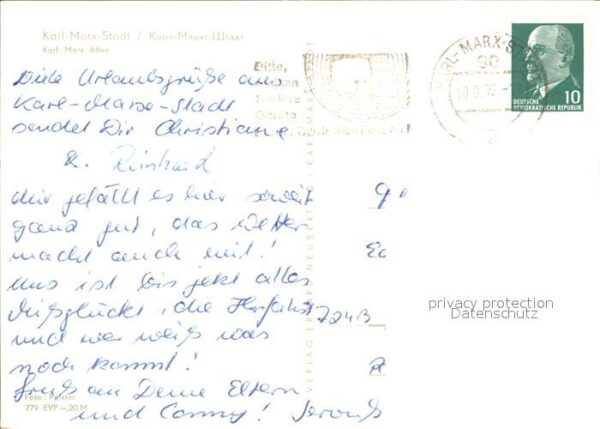 Karl-Marx-Stadt / Карл-Маркс-Штадт
Karl-Marx-Allee
Viele Urlaubsgrüße aus
Karl-Marx-Stadt
sendet Dir Christiane
u. Reinhard
Mir gefällt es hier soweit
ganz gut, das Wetter
macht auch mit!
Uns ist bis jetzt alles
mißglückt, die Herfahrt
und wer weiß was
noch kommt!
Gruß an Deine Eltern
und Conny!
Foto: Forster
779 EVP -.20 M
VERLAG ERHARD NEUBERT KG KARL-MARX-STADT
Bitte,
KARL-MARX-STADT
90
10
DEUTSCHE
DEMOKRATISCHE REPUBLIK
privacy protection
Datenschutz